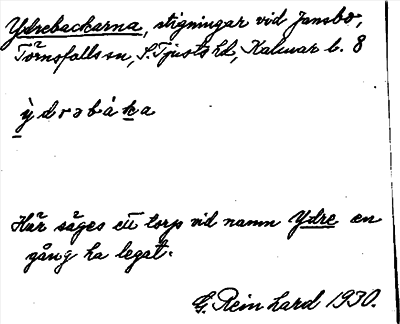 Ydrebackarna, stigningar vid Jansbo,
Törnsfalls sn, S. Tjusts hd, Kalmar l. 8
ỳdrəbàka
Här säges ett torp vid namn Ydre en
gång ha legat.
G. Reinhard 1930.